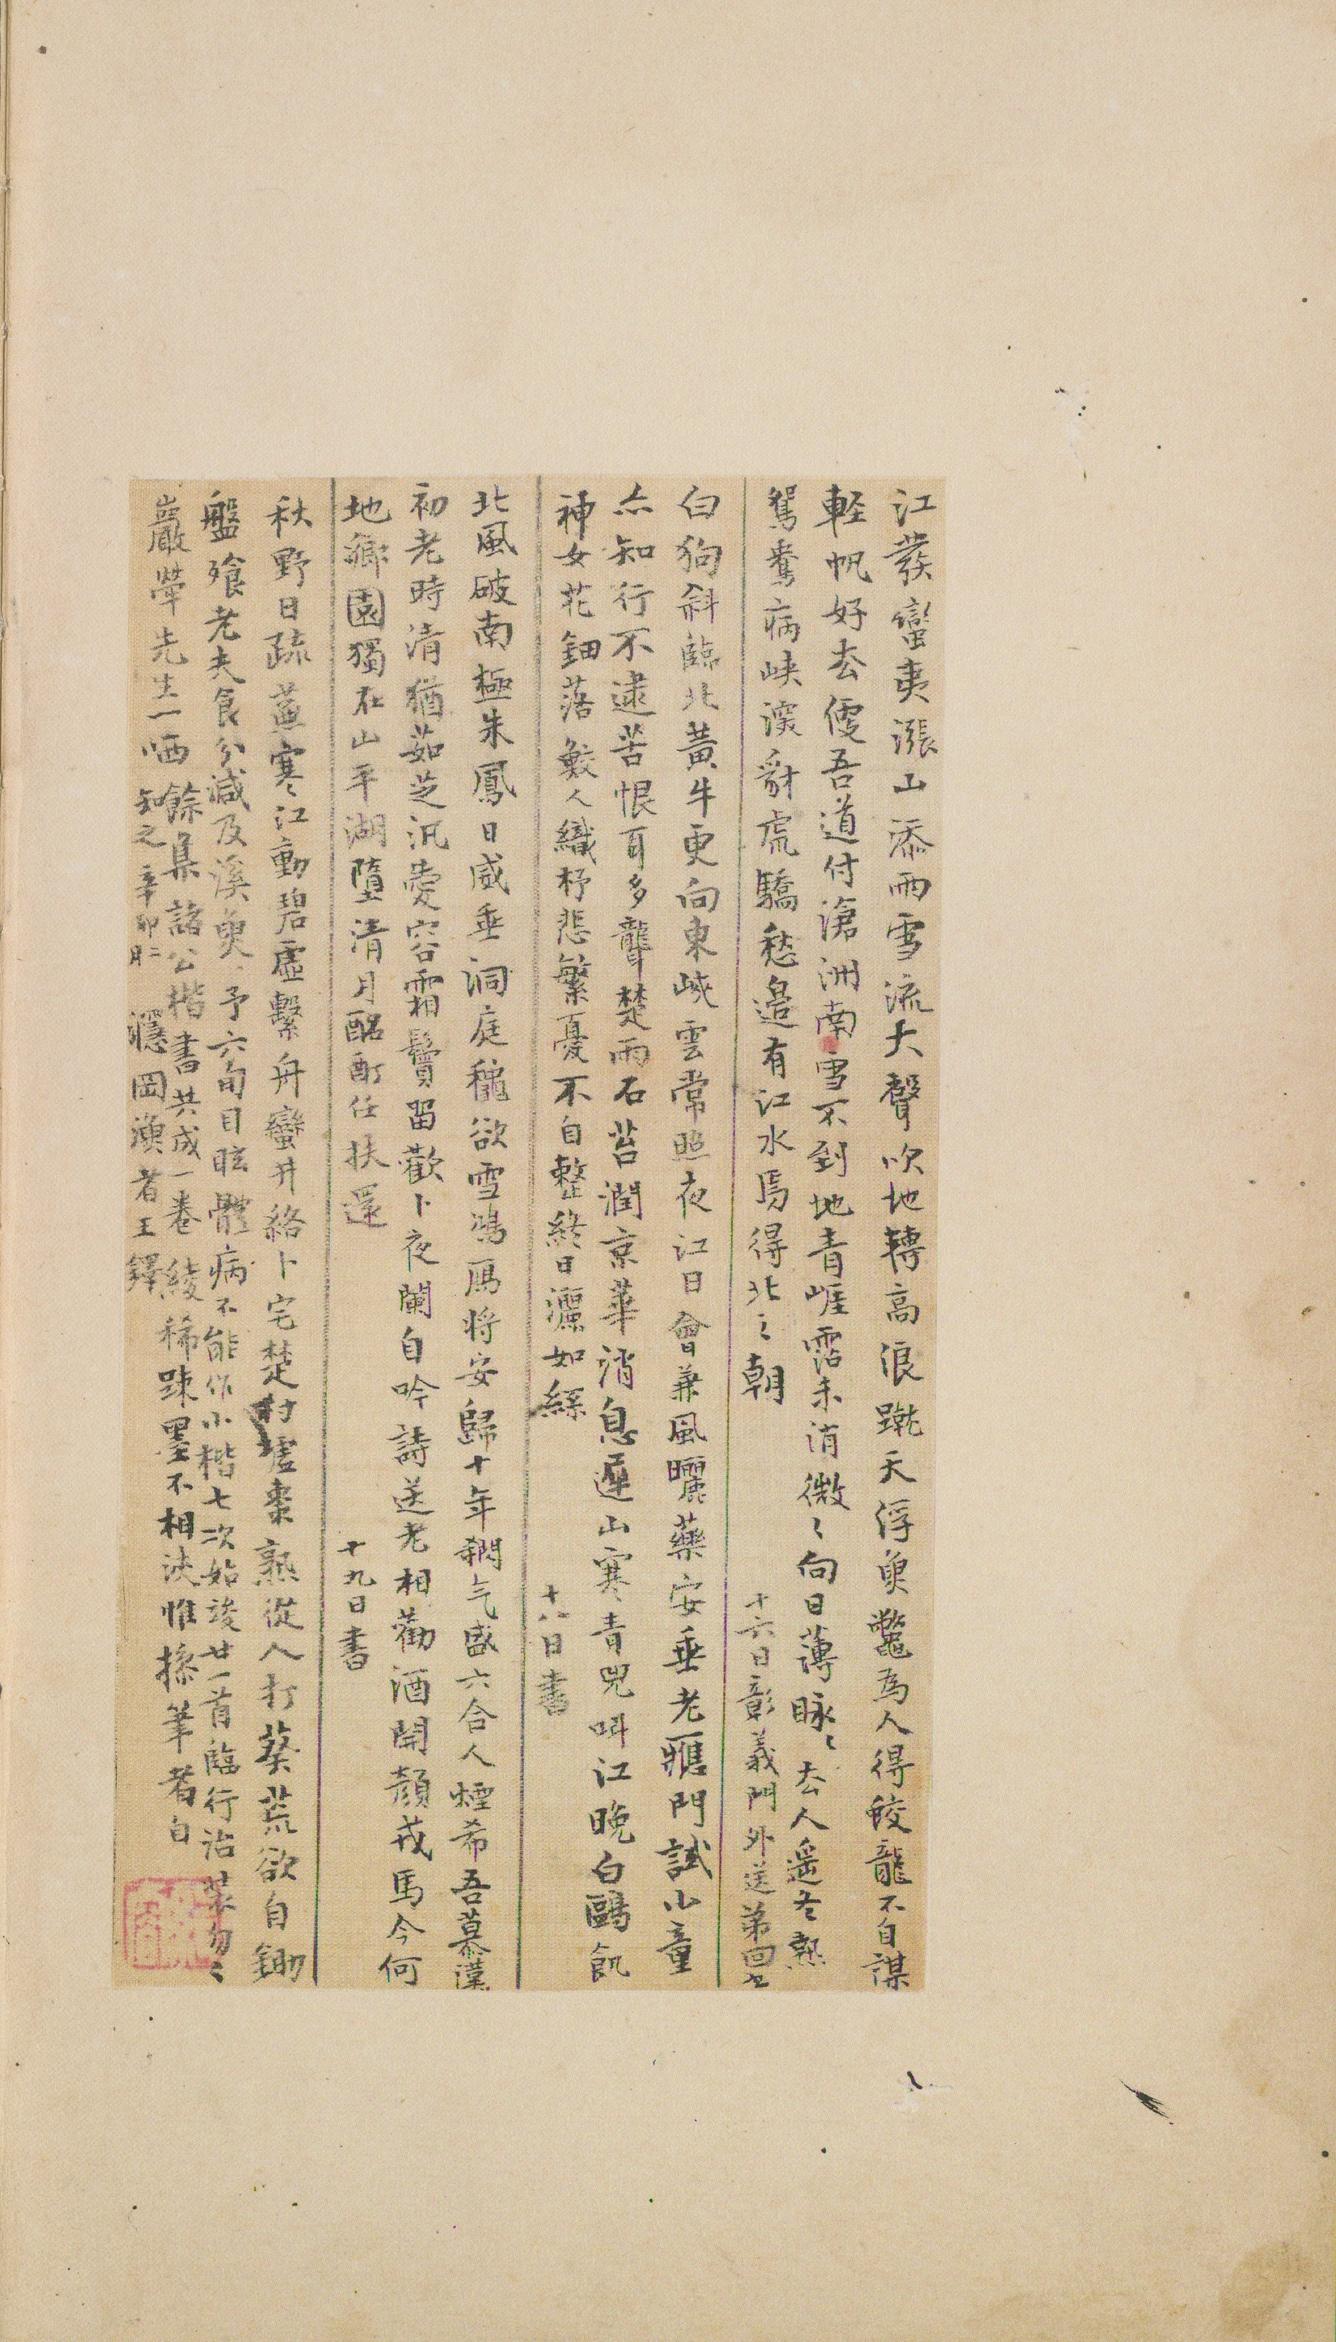 江發蠻夷漲山添雨雪流大聲吹地轉高浪蹴天浮魚鼈為人得蛟龍不自謀
輕帆好去便吾道付滄洲南雪不到地青崖霑未消微〻向日薄眽〻去人遙冬熱
鴛鴦病峽深豺虎驕愁邊有江水焉得北之朝
十六日彰義門外送弟回
白狗斜臨北黃牛更向東峽雲常照夜江日會兼風曬藥安垂老應門試小童
亦知行不逮苦恨耳多聾楚雨石苔潤京華消息遲山寒青兕叫江晚白鷗飢
神女花鈿落鮫人織杼悲繁憂不自整終日灑如絲
十八日書
北風破南極朱鳳日威垂洞庭秋欲雪鴻雁將安歸十年殺气盛六合人煙希吾慕漢
初老時清猶茹芝汎愛容霜鬢留歡卜夜闌自吟詩送老相勸酒開顏戎馬今何
地鄉園獨在山平湖墮清月酩酊任扶還
十九日書
秋野日疏蕪寒江動碧虛繫舟蠻井絡卜宅楚村墟棗熟從人打葵荒欲自鋤
盤飱老夫食分減及溪魚予六旬目眩體病不能作小楷七次始竣廿一首臨行治裝匆〻
巖犖先生一哂餘集諸公楷書共成一卷綾稀踈墨不相浹惟操筆者自
知之辛卯二月 㶏岡漁者王鐸